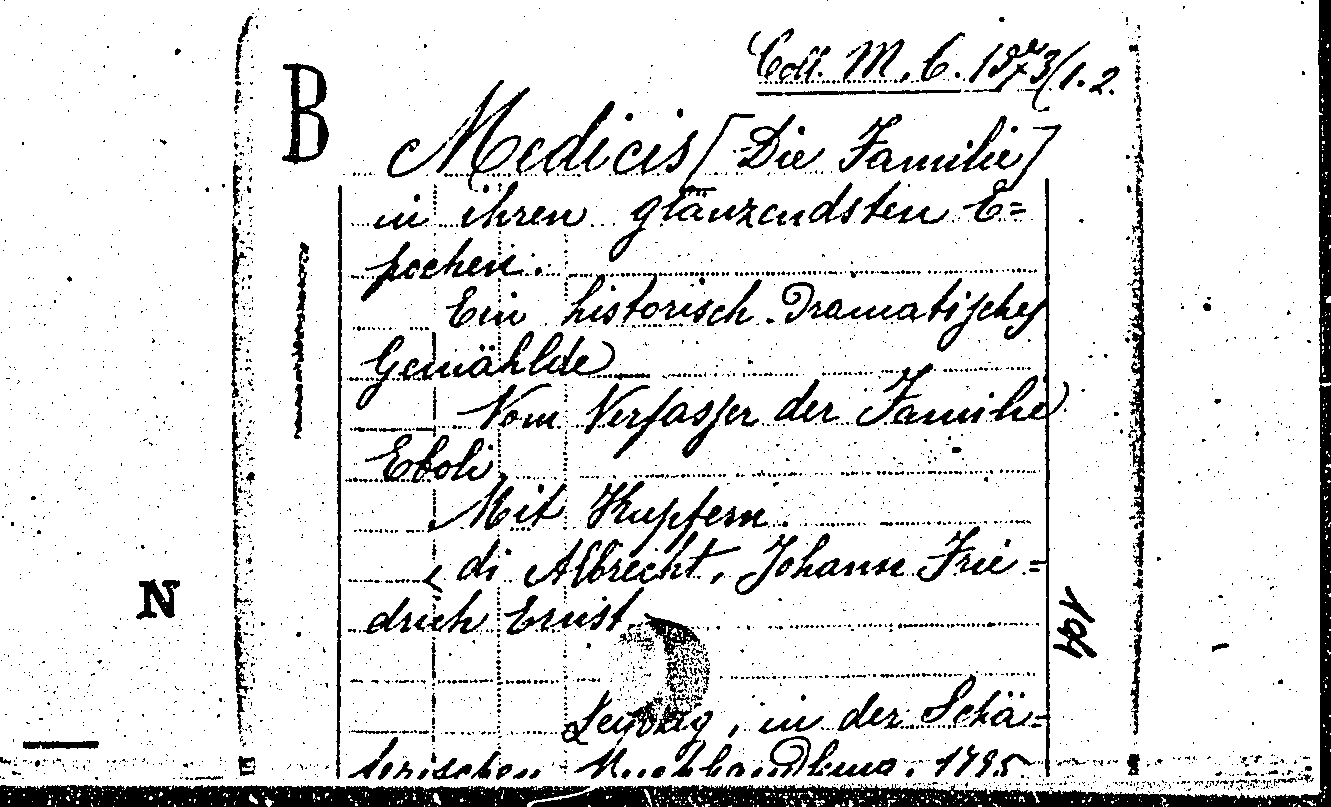 Coll. M. C. 1873/1.2.
B
Medicis [Die Familie]
in ihren glänzendsten E=
pochen.
Ein historisch-Dramatisches
Gemählde
Vom Verfasser der Familie
Eboli
Mit Kupfern.
di Albrecht, Johann Frie=
drich Ernst
N
194
Leipzig, in der Schä=
ferischen Buchhandlung. 1795